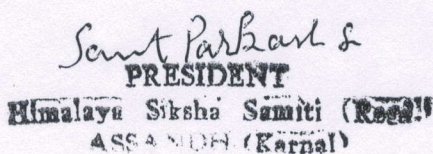 Sant Parkash
PRESIDENT
Himalaya Siksha Samiti (Regd.)
ASSANDH (Karnal)